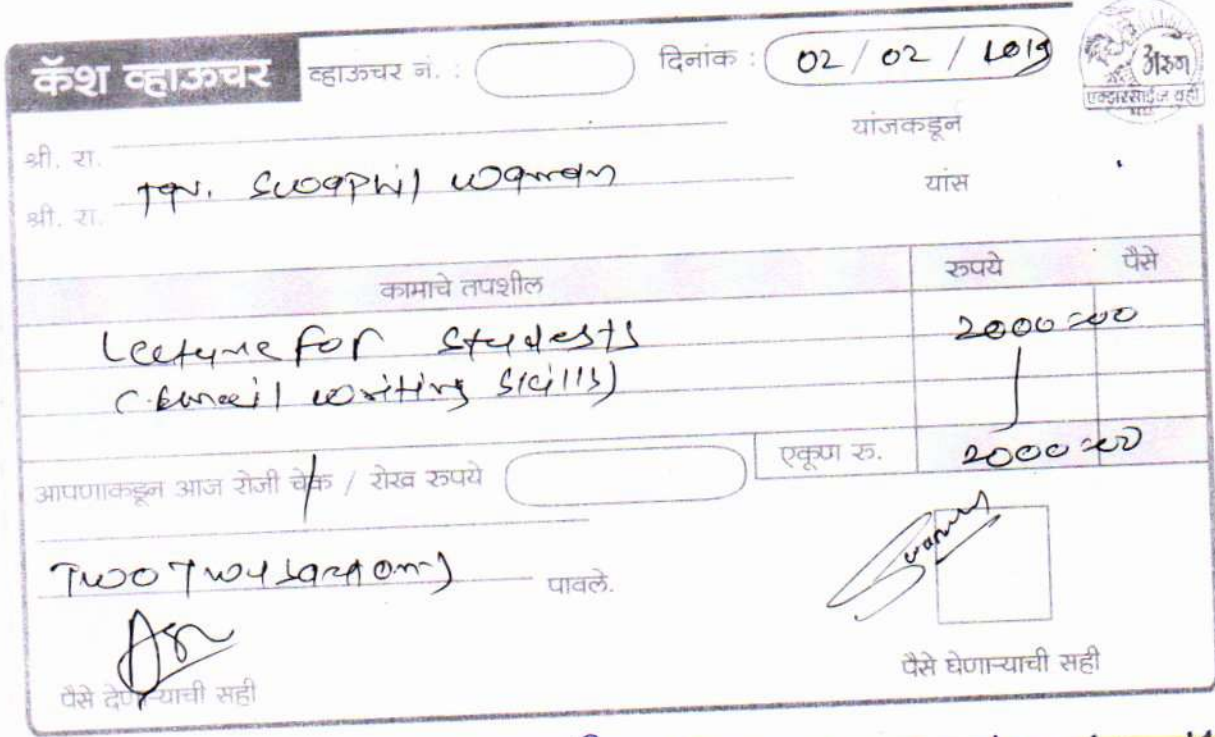 कॅश व्हाऊचर व्हाऊचर नं. : दिनांक : 02 / 02 / 2019
अरुण
एक्झरसाईज वही
श्री. रा. यांजकडून
श्री. रा. Swapnil Waman यांस
कामाचे तपशील रुपये पैसे
Lecture for Students 2000=00
(Email writing skills)
एकूण रु. 2000=00
आपणाकडून आज रोजी चेक / रोख रुपये
Two Thousand only पावले.
पैसे देणाऱ्याची सही पैसे घेणाऱ्याची सही